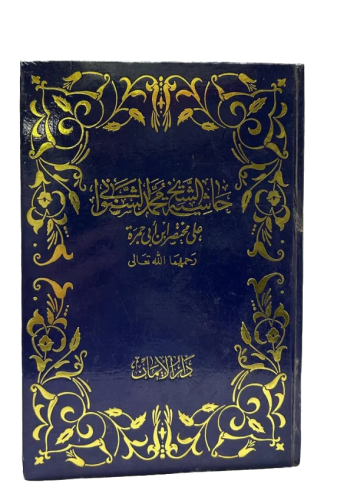 حاشية الشيخ محمد الشنواني
على مختصر ابن أبي جمرة
رحمهما الله تعالى
دار الإيمان